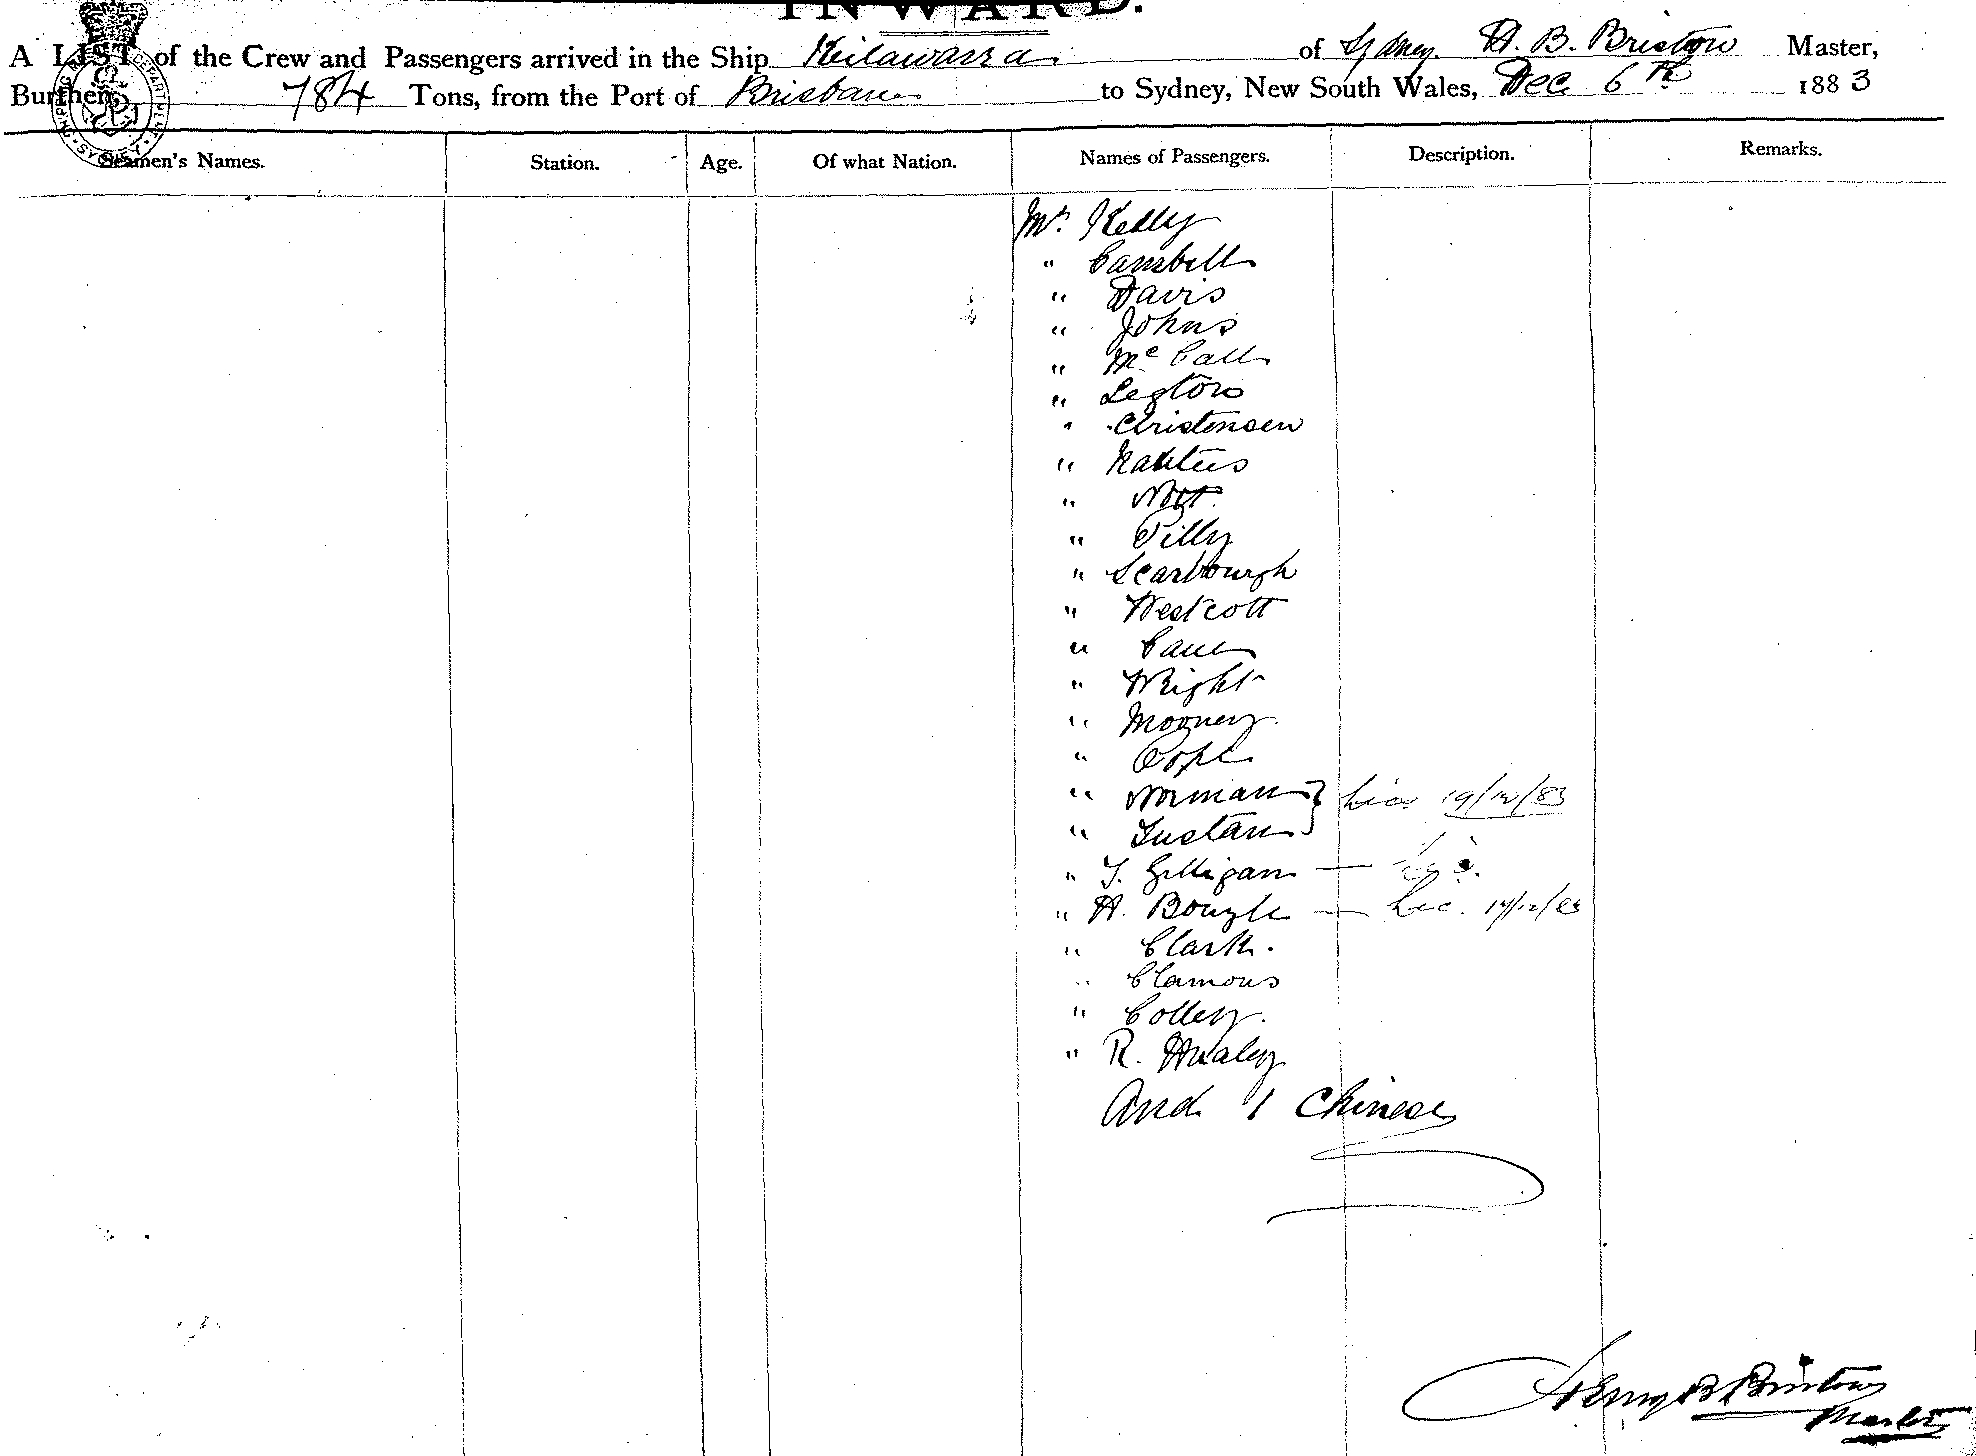 INWARD.
A LIST of the Crew and Passengers arrived in the Ship Keilawarra of Sydney. H. B. Bristow Master,
Burthen 784 Tons, from the Port of Brisbane to Sydney, New South Wales, Dec 6th 1883
Seamen's Names. Station. Age. Of what Nation. Names of Passengers. Description. Remarks.
Mr. Kelly
" Cambell
" Davis
" Johns
" Mc Call
" Legton
" Christensen
"
" Nott
" Pilly
" Scarbourgh
" Westcott
" Cane
" Wright
" Mooney
" Pope
" Norman } 19/12/83
" Gustan
" T. Gilligan —
" H. Bougle —
" Clark.
" Clamous
" Colley.
" R. Healey
And 1 Chinese
Henry B Bristow
Master